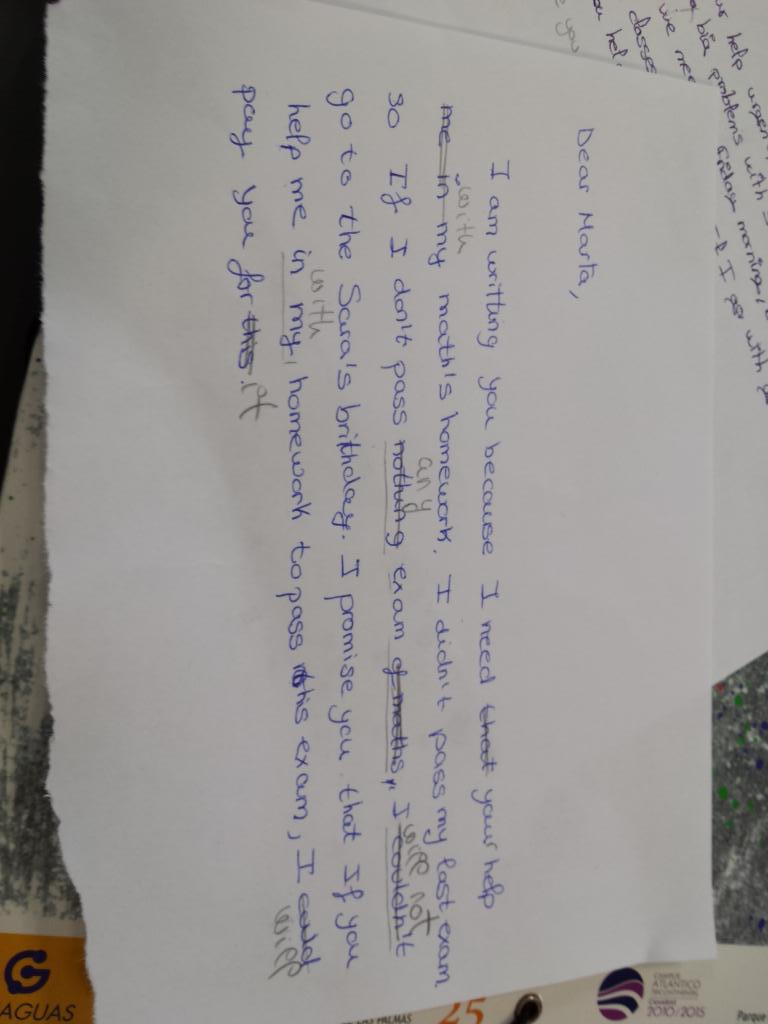 Dear Marta,
I am writting you because I need that your help
me in with my math's homework. I didn't pass my last exam
so If I don't pass nothing any exam of maths, I couldn't will not
go to the Sara's brithday. I promise you that If you
help me in with my homework to pass this exam, I could will
pay you for this. it
ur help urgen
big problems with
we nee
classe
ou hel
e you
friday morning,
I go with yo
AGUAS
LAS PALMAS
25
CAMPUS
ATLÁNTICO
TRICONTINENTAL
2010/2015
Parque